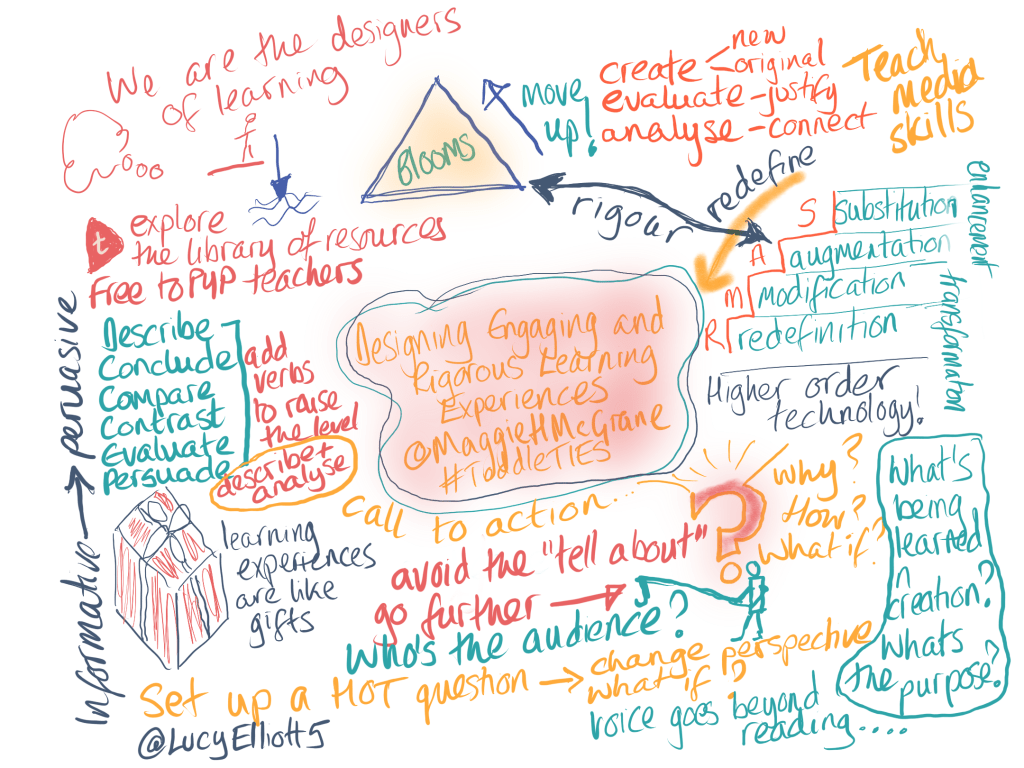 We are the designers
of learning
BLOOMS
move
up!
create
new
original
evaluate - justify
analyse - connect
Teach
media
skills
rigour
redefine
S substitution
A augmentation
M modification
R redefinition
enhancement
transformation
Higher order
technology!
t explore
the library of resources
Free to PYP teachers
Informative → persuasive
Describe
Conclude
Compare
Contrast
Evaluate
Persuade
add
verbs
to raise
the level
describe +
analyse
Designing Engaging and
Rigorous Learning
Experiences
@MaggieHMcGrane
#ToddleTIES
call to action...
?
why?
How?
What if?
avoid the "tell about"
go further
Who's the audience?
learning
experiences
are like
gifts
What's
being
learned
n
creation?
Whats
the purpose?
Set up a HOT question → change perspective
what if?
voice goes beyond
reading....
@LucyElliott5